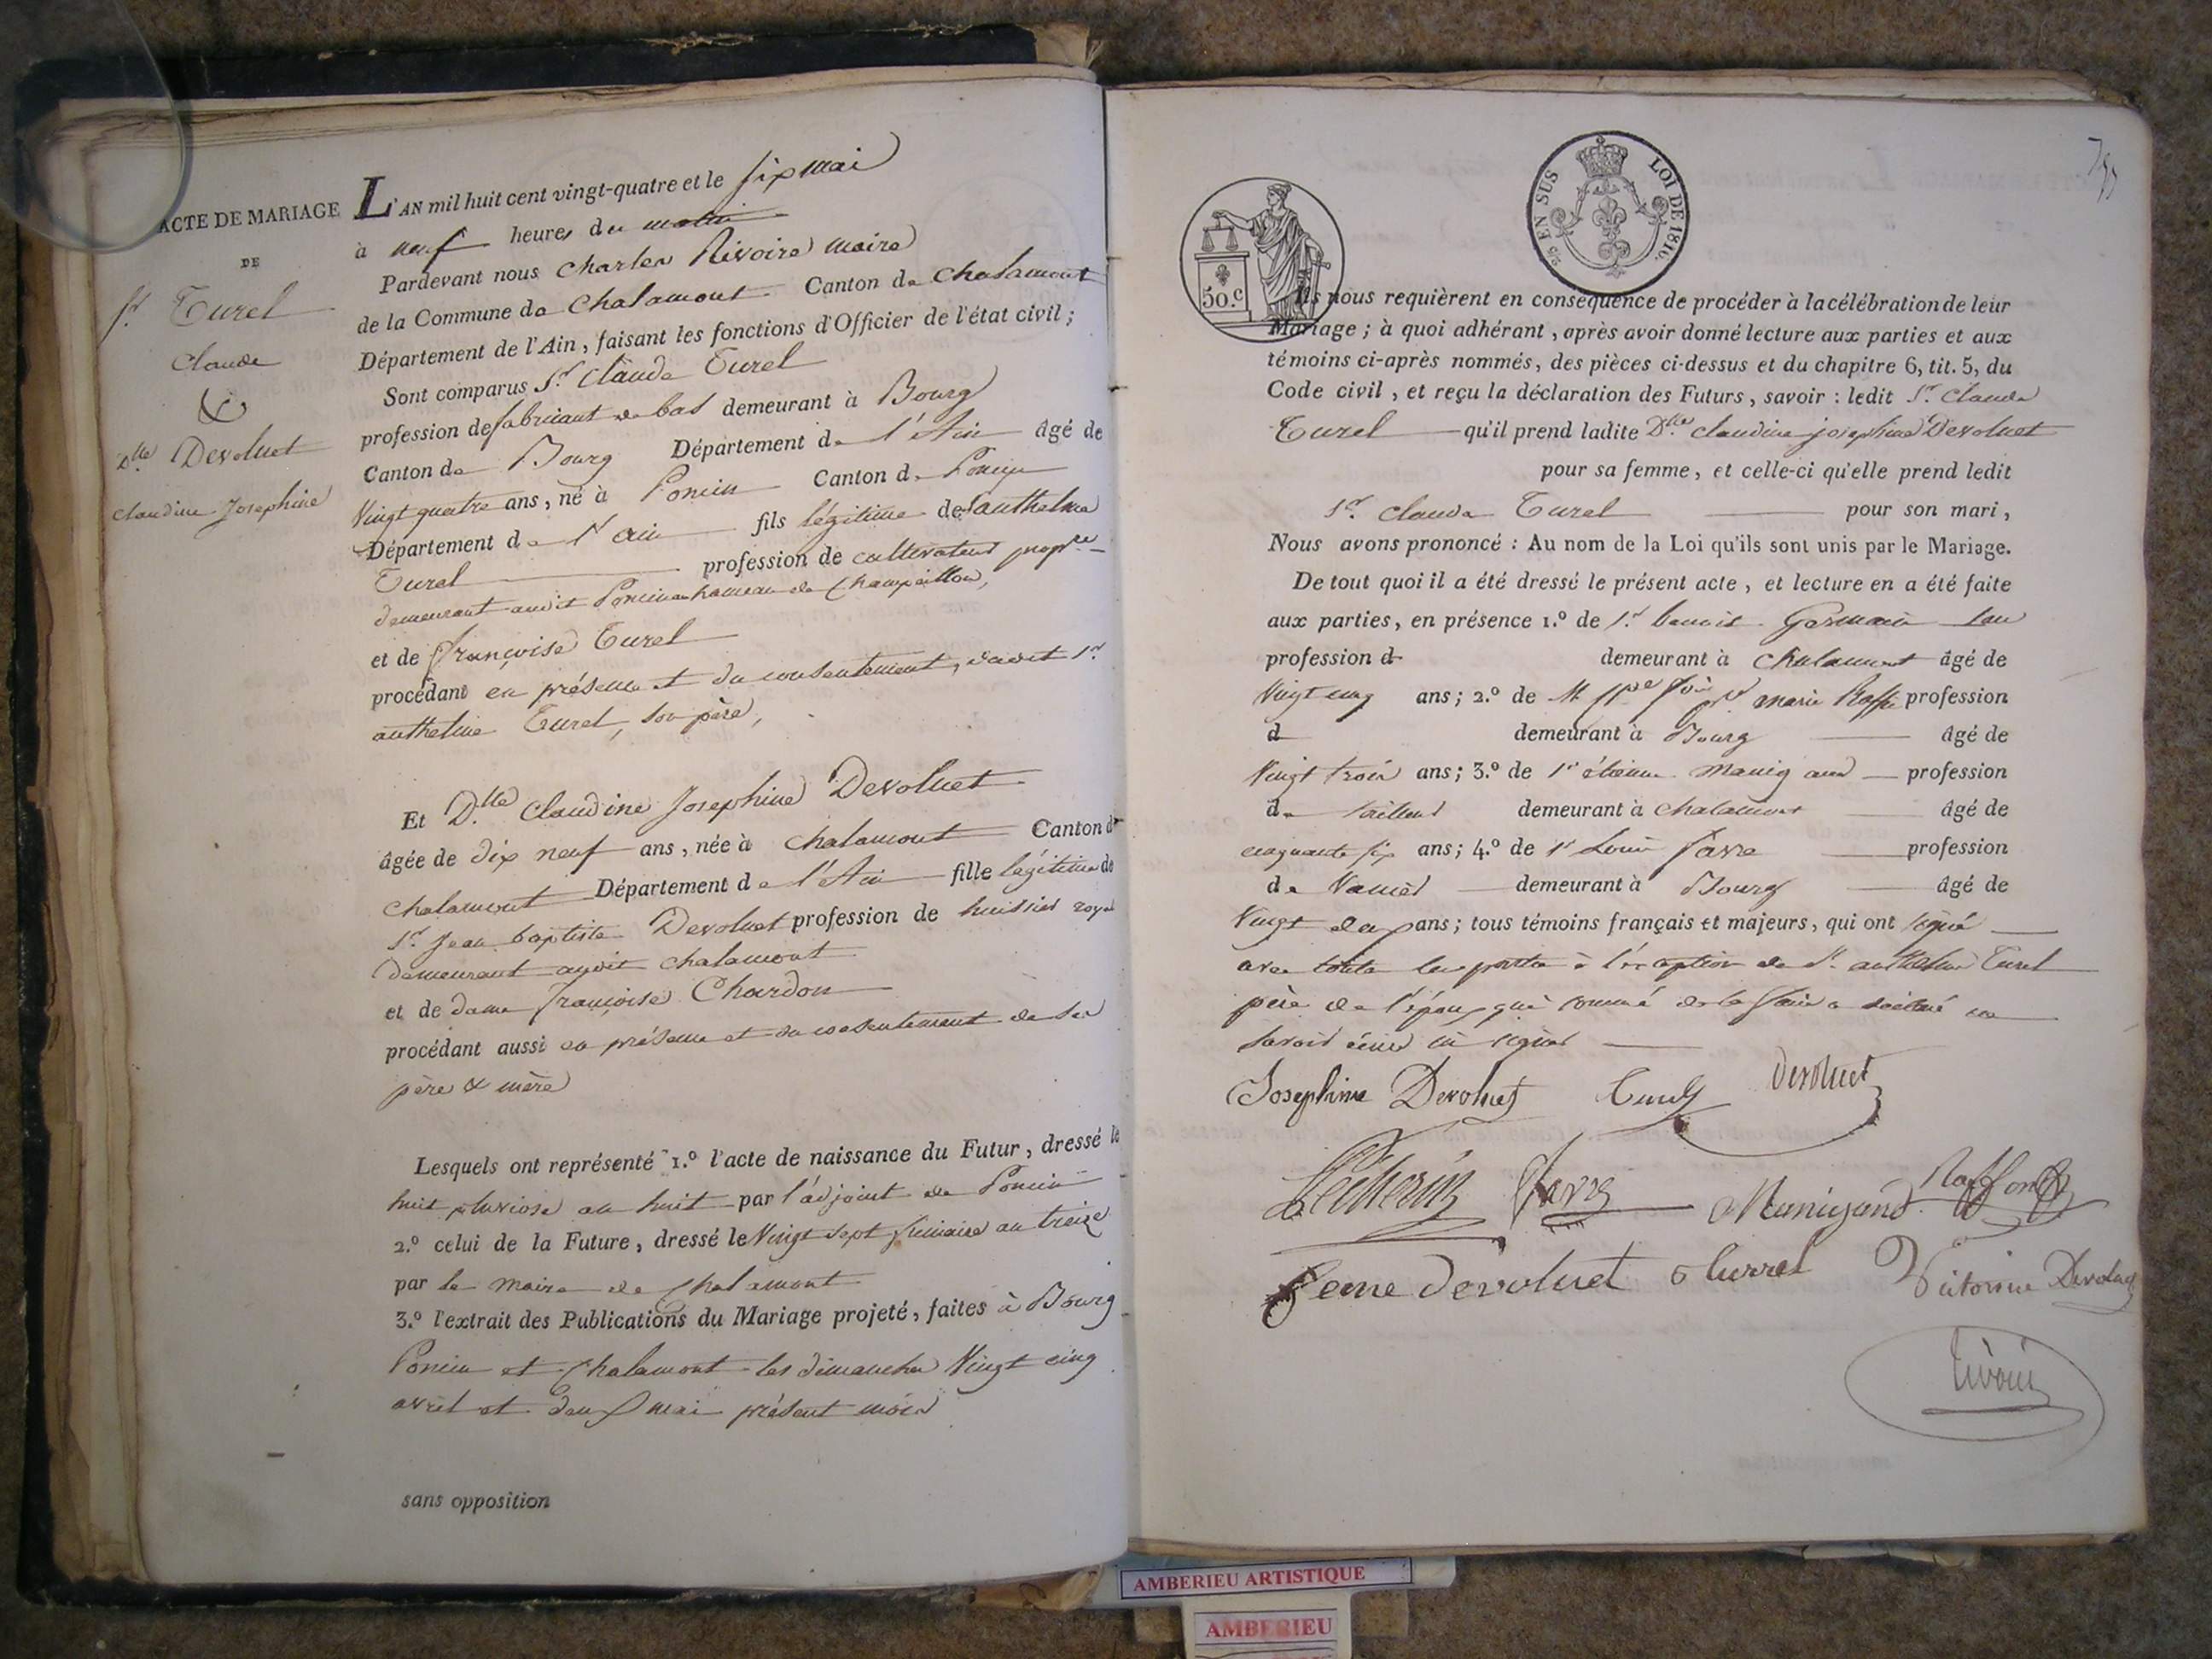 ACTE DE MARIAGE
DE
Sr. Turel
Claude
&
Dlle Devoluet
Claudine Josephine
L'AN mil huit cent vingt-quatre et le six mai
à neuf heures du matin
Pardevant nous Charles Rivoire maire
de la Commune de Chalamont Canton de Chalamont
Département de l'Ain, faisant les fonctions d'Officier de l'état civil;
Sont comparus Sr Claude Turel
profession de fabricant de bas demeurant à Bourg
Canton de Bourg Département de l'Ain âgé de
Vingt quatre ans, né à Poncin Canton de Poncin
Département de l'ain fils légitime de Sr anthelme
Turel profession de cultivateur propre
demeurant audit Poncin au hameau de Champeillon,
et de françoise Turel
procédant en présence et du consentement, dudit Sr
anthelme Turel, son père,
Et Dlle Claudine Josephine Devoluet
âgée de dix neuf ans, née à Chalamont Canton de
Chalamont Département de l'Ain fille légitime de
Sr Jean baptiste Devoluet profession de huissier royal
demeurant audit chalamont
et de dame françoise Chardon
procédant aussi en présence et du consentement de ses
père & mère
Lesquels ont représenté 1.º l'acte de naissance du Futur, dressé le
huit pluviose an huit par l'adjoint de Poncin
2.º celui de la Future, dressé le Vingt sept frimaire an treize
par le maire de Chalamont
3.º l'extrait des Publications du Mariage projeté, faites à Bourg
Poncin et Chalamont les dimanches Vingt cinq
avril et deux mai présent mois
sans opposition
25 EN SUS LOI DE 1816.
50 c
Ils nous requièrent en conséquence de procéder à la célébration de leur
Mariage; à quoi adhérant, après avoir donné lecture aux parties et aux
témoins ci-après nommés, des pièces ci-dessus et du chapitre 6, tit. 5, du
Code civil, et reçu la déclaration des Futurs, savoir : ledit Sr. Claude
Turel qu'il prend ladite Dlle Claudine josephine Devoluet
pour sa femme, et celle-ci qu'elle prend ledit
Sr. Claude Turel pour son mari,
Nous avons prononcé : Au nom de la Loi qu'ils sont unis par le Mariage.
De tout quoi il a été dressé le présent acte, et lecture en a été faite
aux parties, en présence 1.º de Sr. benoit Germain
profession d demeurant à Chalamont âgé de
Vingt cinq ans; 2.º de M marie profession
d demeurant à Bourg âgé de
Vingt trois ans; 3.º de Sr étienne Manigand profession
de tailleur demeurant à Chalamont âgé de
cinquante six ans; 4.º de Sr Louis favre profession
de demeurant à Bourg âgé de
Vingt deux ans; tous témoins français et majeurs, qui ont signé
avec toutes les parties à l'exception de Sr anthelme Turel
père de l'époux qui sommé de le faire a déclaré ne
savoir écrire ni signer
Josephine Devoluet Turel Devoluet
favre Manigand
feme devoluet Victorine Devoluet
Rivoire
AMBERIEU ARTISTIQUE
AMBERIEU